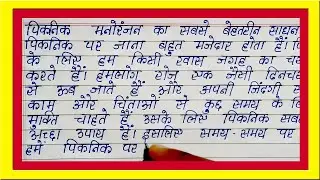 पिकनिक मनोरंजन का सबसे बेहतरीन साधन
पिकनिक पर जाना बहुत मजेदार होता है।
के लिए हम किसी खास जगह का
करते हैं। हमलोग रोज एक जैसी
से ऊब जाते हैं और अपनी जिंदगी
काम और चिंताओं से कुछ समय के
मुक्ति चाहते हैं उसके लिए पिकनिक
अच्छा उपाय है। इसलिए समय-समय पर
हमें पिकनिक पर